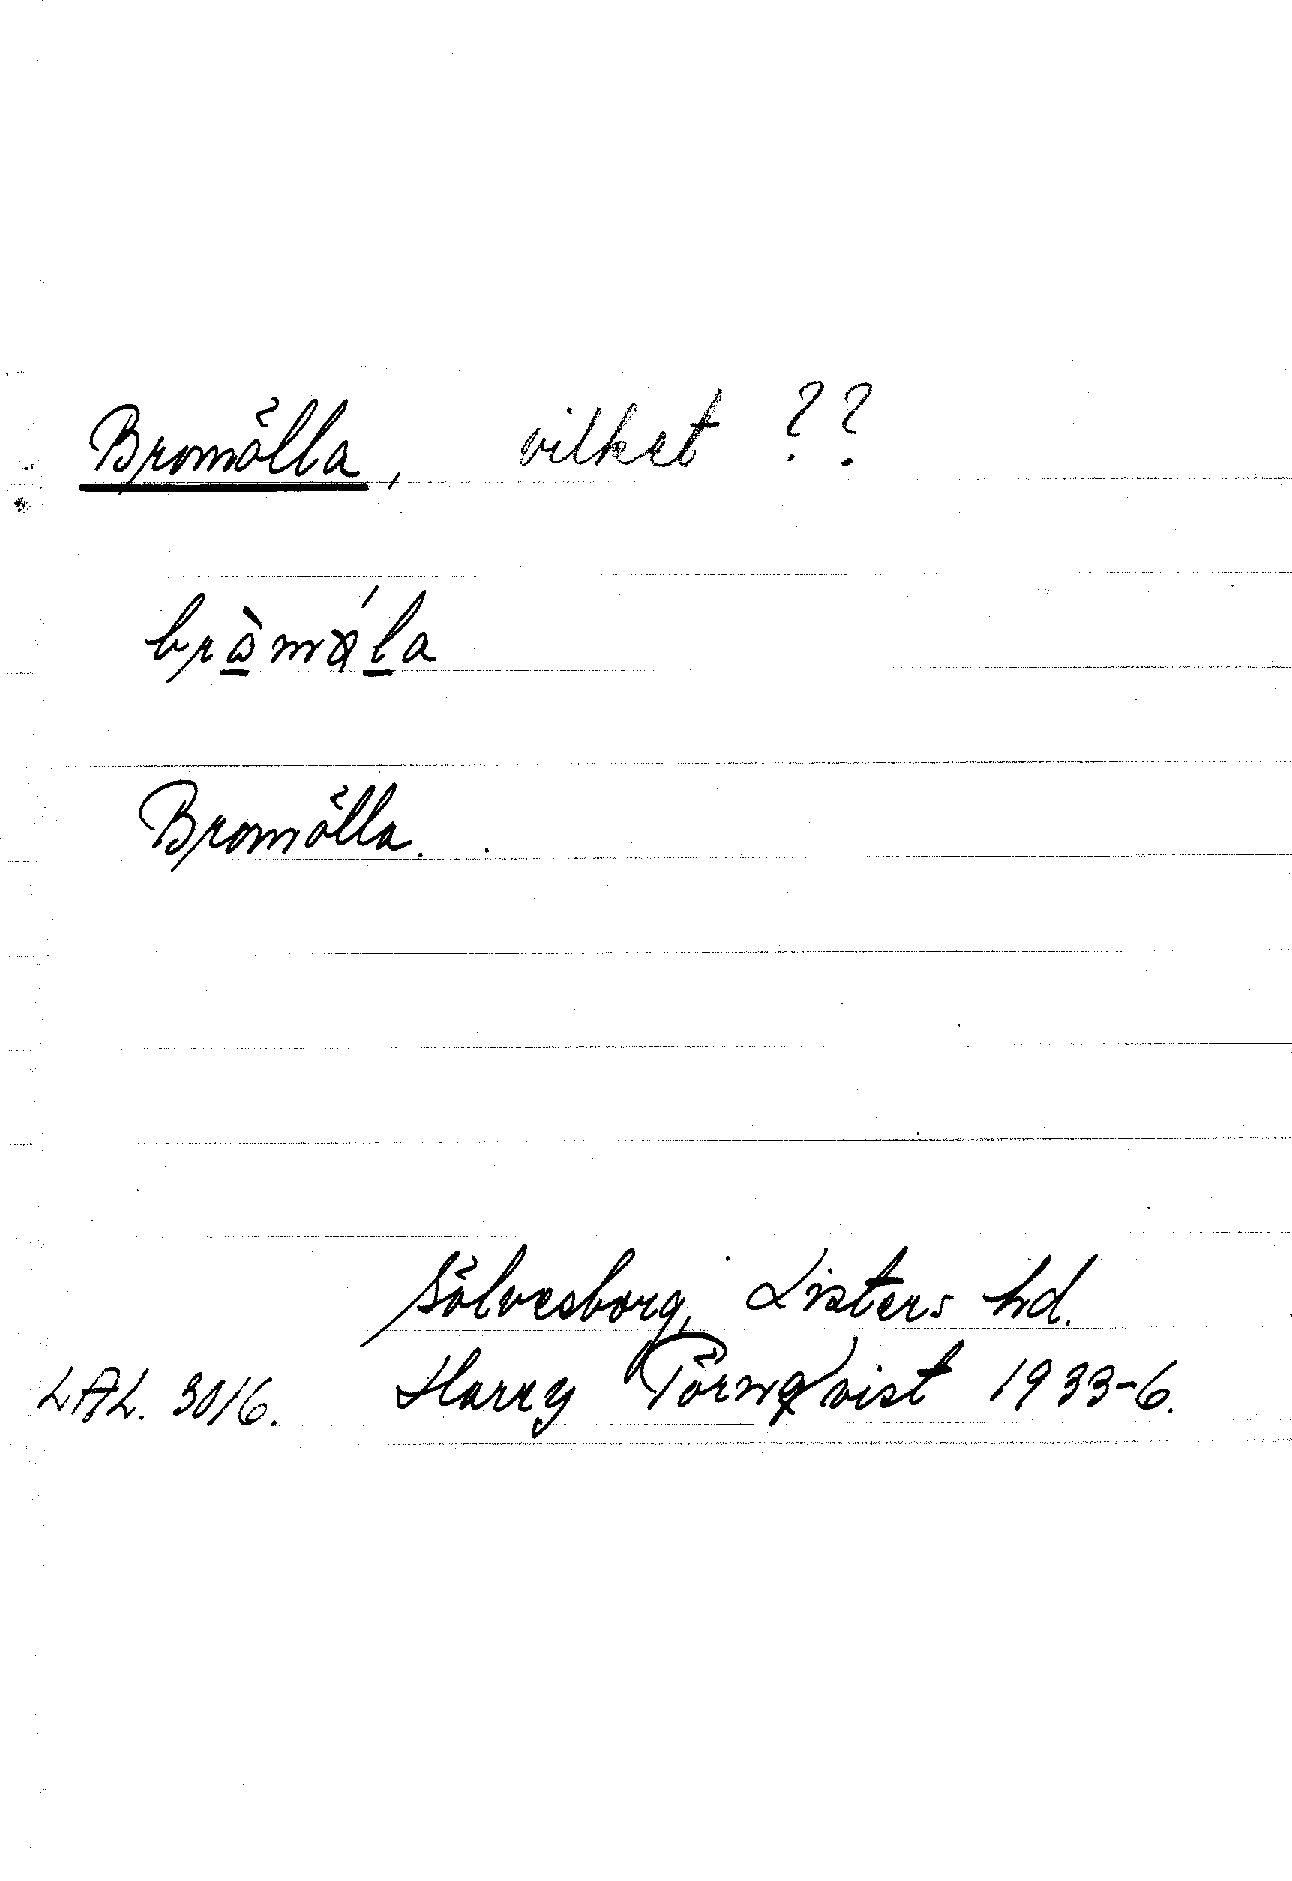 Bromölla, vilket ??
bràmála
Bromölla.
Sölvesborg, Listers hd.
LAL. 3016. Harry Törnqvist 1933-6.